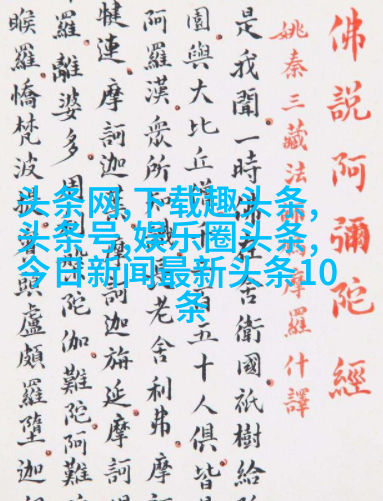 佛說阿彌陀經
姚秦三藏法摩羅什譯
是我聞一時佛在舍衛國祇樹給
園與大比丘僧千百五十人俱皆
阿羅漢眾所知長老舍利弗摩
犍連摩訶迦葉摩訶迦旃延摩訶
羅離婆多周陀伽難陀阿難
睺羅憍梵波頭盧頗羅墮迦
头条网,下载趣头条,
头条号,娱乐圈头条,
今日新闻最新头条10
条